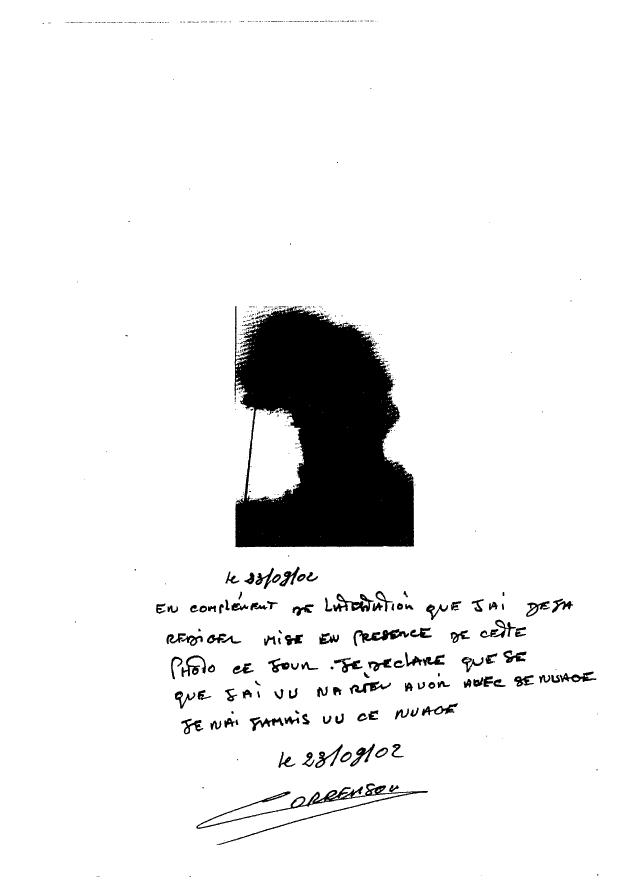 le 23/09/02
EN COMPLÉMENT DE LATESTATION QUE JAI DEJA
REDIGER MISE EN PRESENCE DE CETTE
PHOTO CE JOUR . JE DECLARE QUE SE
QUE JAI VU NA RIEN AVOIR AVEC SE NUAGE
JE NAI JAMAIS VU CE NUAGE
le 23/09/02